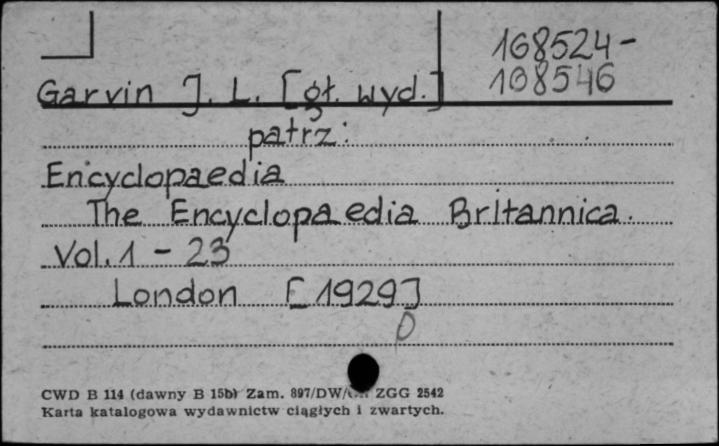 168524-
108546
Garvin J. L. [gł. wyd.]
patrz:
Encyclopaedia
The Encyclopaedia Britannica.
Vol. 1 - 23
London [1929]
CWD B 114 (dawny B 15b) Zam. 897/DW/ ZGG 2542
Karta katalogowa wydawnictw ciągłych i zwartych.